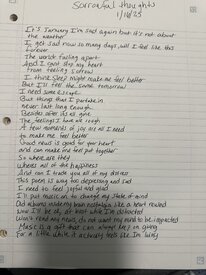 Sorrowful thoughts
1/16/25
It's January I'm sad again but it's not about
the weather
I get sad now so many days, will I feel like this
forever
The world's falling apart
And I can't stop my heart
from feeling sorrow
I think sleep might make me feel better
But I'll feel the same tomorrow
I need some escape
But things that I partake in
never last long enough
Besides after its is gone
The feelings I have are rough
A few moments of joy are all I need
to make me feel better
Good news is good for your heart
And can make one feel put together
So where are they
Where's all of the happiness
And can I trade you all of my distress
This poem is way too depressing and sad
I need to feel joyful and glad
I'll put music on to change my state of mind
Old albums evidently bear nostalgia like a heart rewind
Now I'll be ok, at least while I'm distracted
Won't read any news, do not want my mind to be impacted
Music is a gift that can always keep on giving
For a little while it actually feels like I'm living